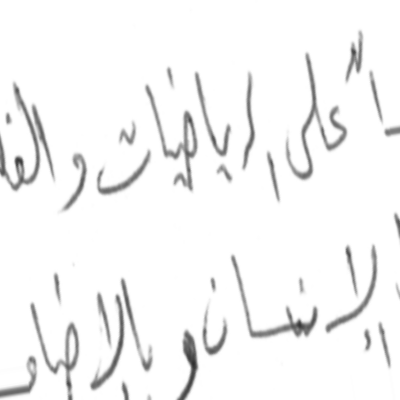 على الرياضيات و الف
الإنسان و بالإضا